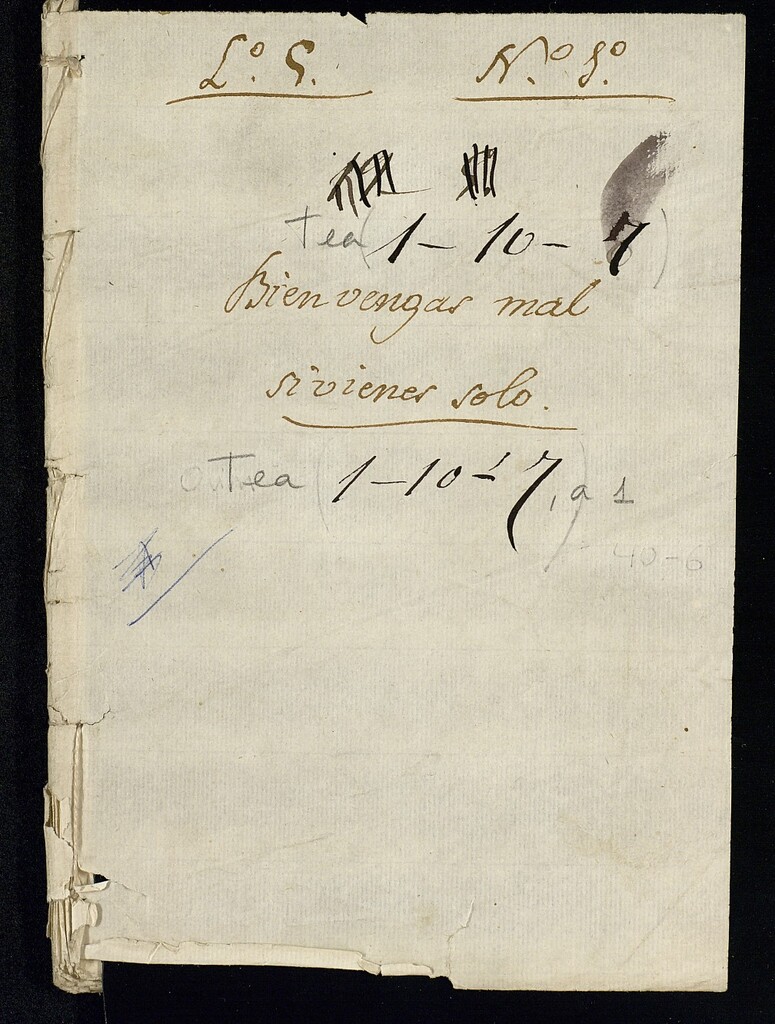 Lº. G.
Nº. 8º.
Tea (1 - 10 - 7)
Bien vengas mal
si vienes solo.
Tea (1 - 10 - 7, a 1
40-6